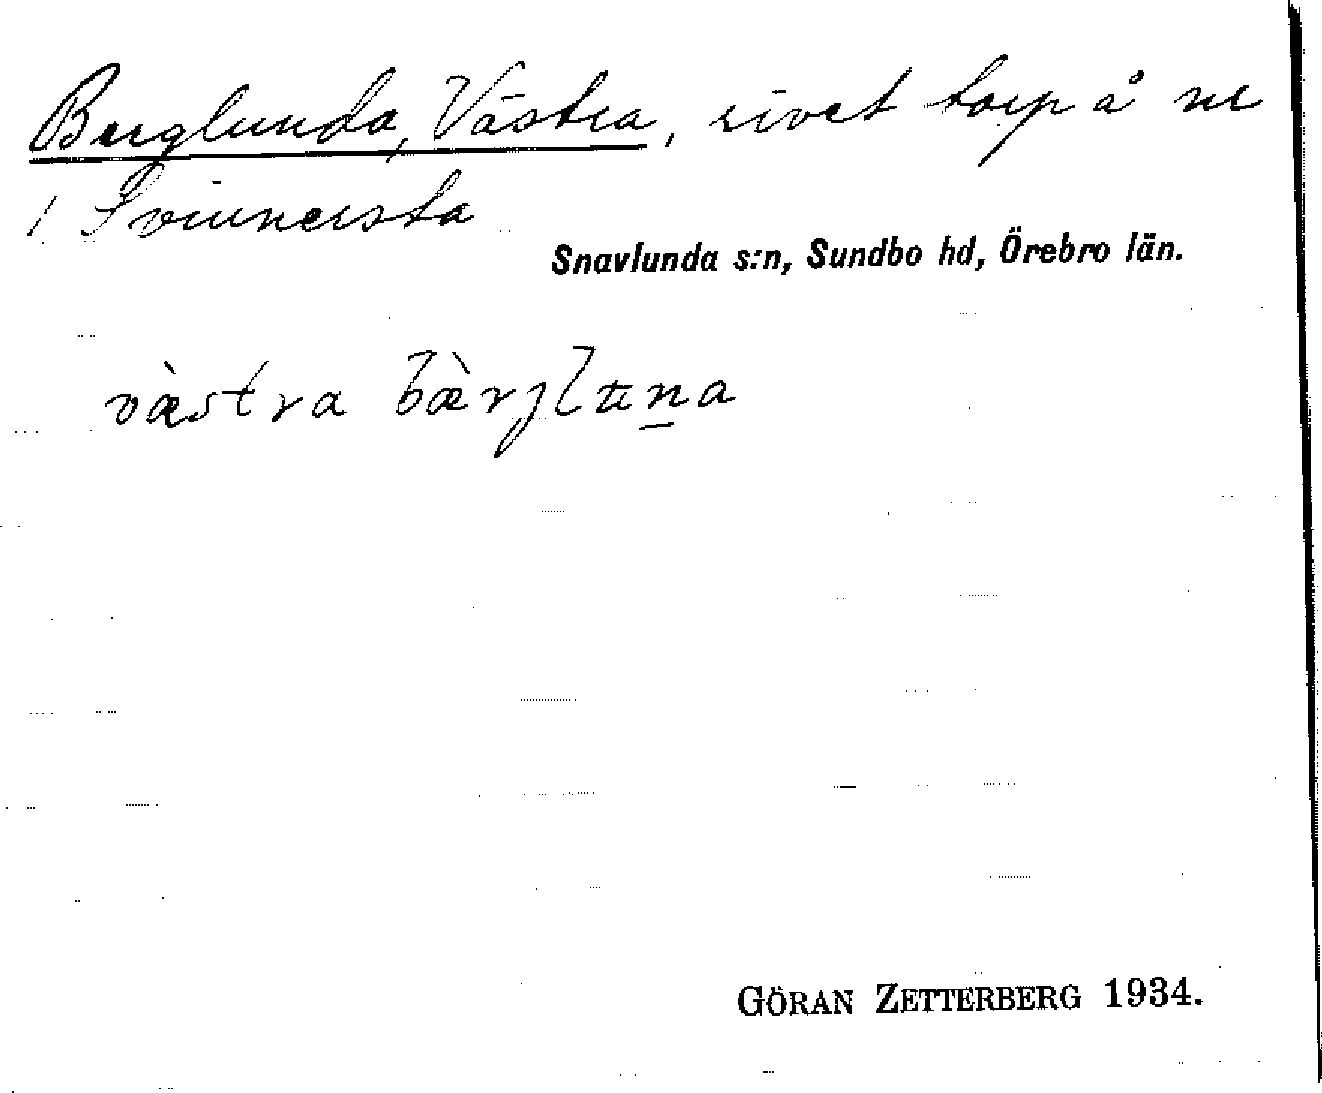 Berglunda, Västra, rivet torp å nr
1 Svinnersta
Snavlunda s:n, Sundbo hd, Örebro län.
vàstra bæ̀rjluna
GÖRAN ZETTERBERG 1934.